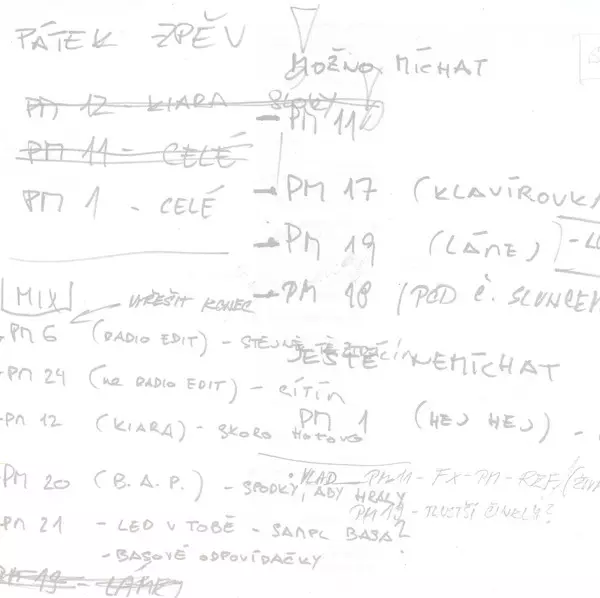 PÁTEK ZPĚV
PM 12 - KIARA SLOKY
PM 11 - CELÉ
PM 1 - CELÉ
MIX
VYŘEŠIT KONEC
- PM 6 (RADIO EDIT) - STEJNĚ
- PM 24 (NE RADIO EDIT) - CÍTÍM
- PM 12 (KIARA) - SKORO HOTOVO
PM 20 (B. A. P.) - SPODKY, ABY HRÁLY
- PM 21 - LED V TOBĚ - SAMPL BASA?
- BASOVÉ ODPOVÍDAČKY
PM 19 - LÁMEJ
MOŽNO MÍCHAT
- PM 11
- PM 17 (KLAVÍROVKA
- PM 19 (LÁME)
- PM 18 (POD Č. SLUNCEM
JEŠTĚ NEMÍCHAT
PM 1 (HEJ HEJ) -
• VLAD PM 11 - FX - PM - REF
PM 19 - TLUSTŠÍ ČINELY?